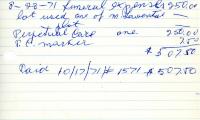 8-28-71 funeral expenses 250.00
lot used one of
slot
Perpetual Care one 250.00
P.C. marker 7.50
$507.50
Paid 10/17/71 # 1571 $507.50